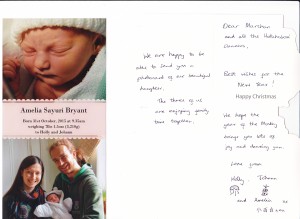 Amelia Sayuri Bryant
Born 31st October, 2015 at 9.35am
weighing 7lb 1.12oz (3.25kg)
to Holly and Johann
We are happy to be
able to send you a
photocard of our beautiful
daughter.
The three of us
are enjoying family
time together.
Dear
and all the
Best wishes for the
New Year!
Happy Christmas
We hope the
year of the Monkey
brings you lots of
joy and
love from
Holly
Johann
and Amelia